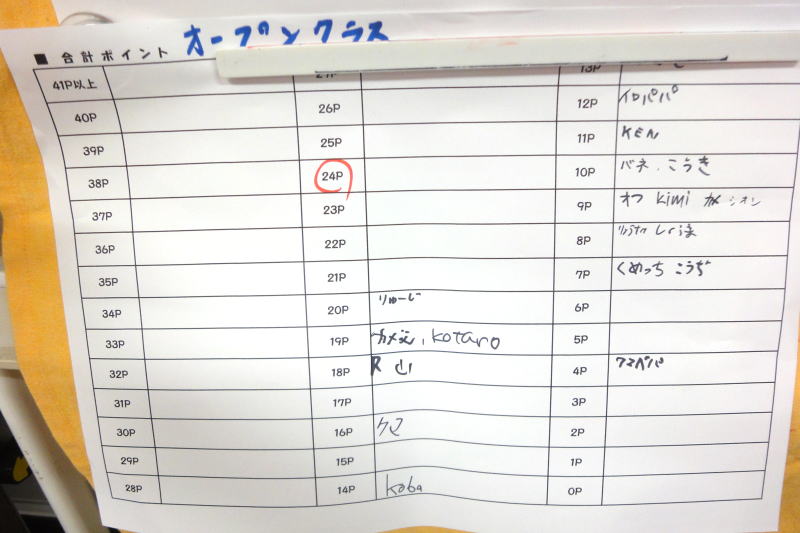 オープンクラス
■ 合計ポイント
41P以上
40P
39P
38P
37P
36P
35P
34P
33P
32P
31P
30P
29P
28P
27P
26P
25P
24P
23P
22P
21P
20P りゅーじ
19P kotaro
18P R 山
17P
16P クマ
15P
14P koba
13P
12P イロパパ
11P KEN
10P バネ.こうき
9P オフ kimi ガメ シオン
8P
7P くめっち こうじ
6P
5P
4P アマペパ
3P
2P
1P
0P